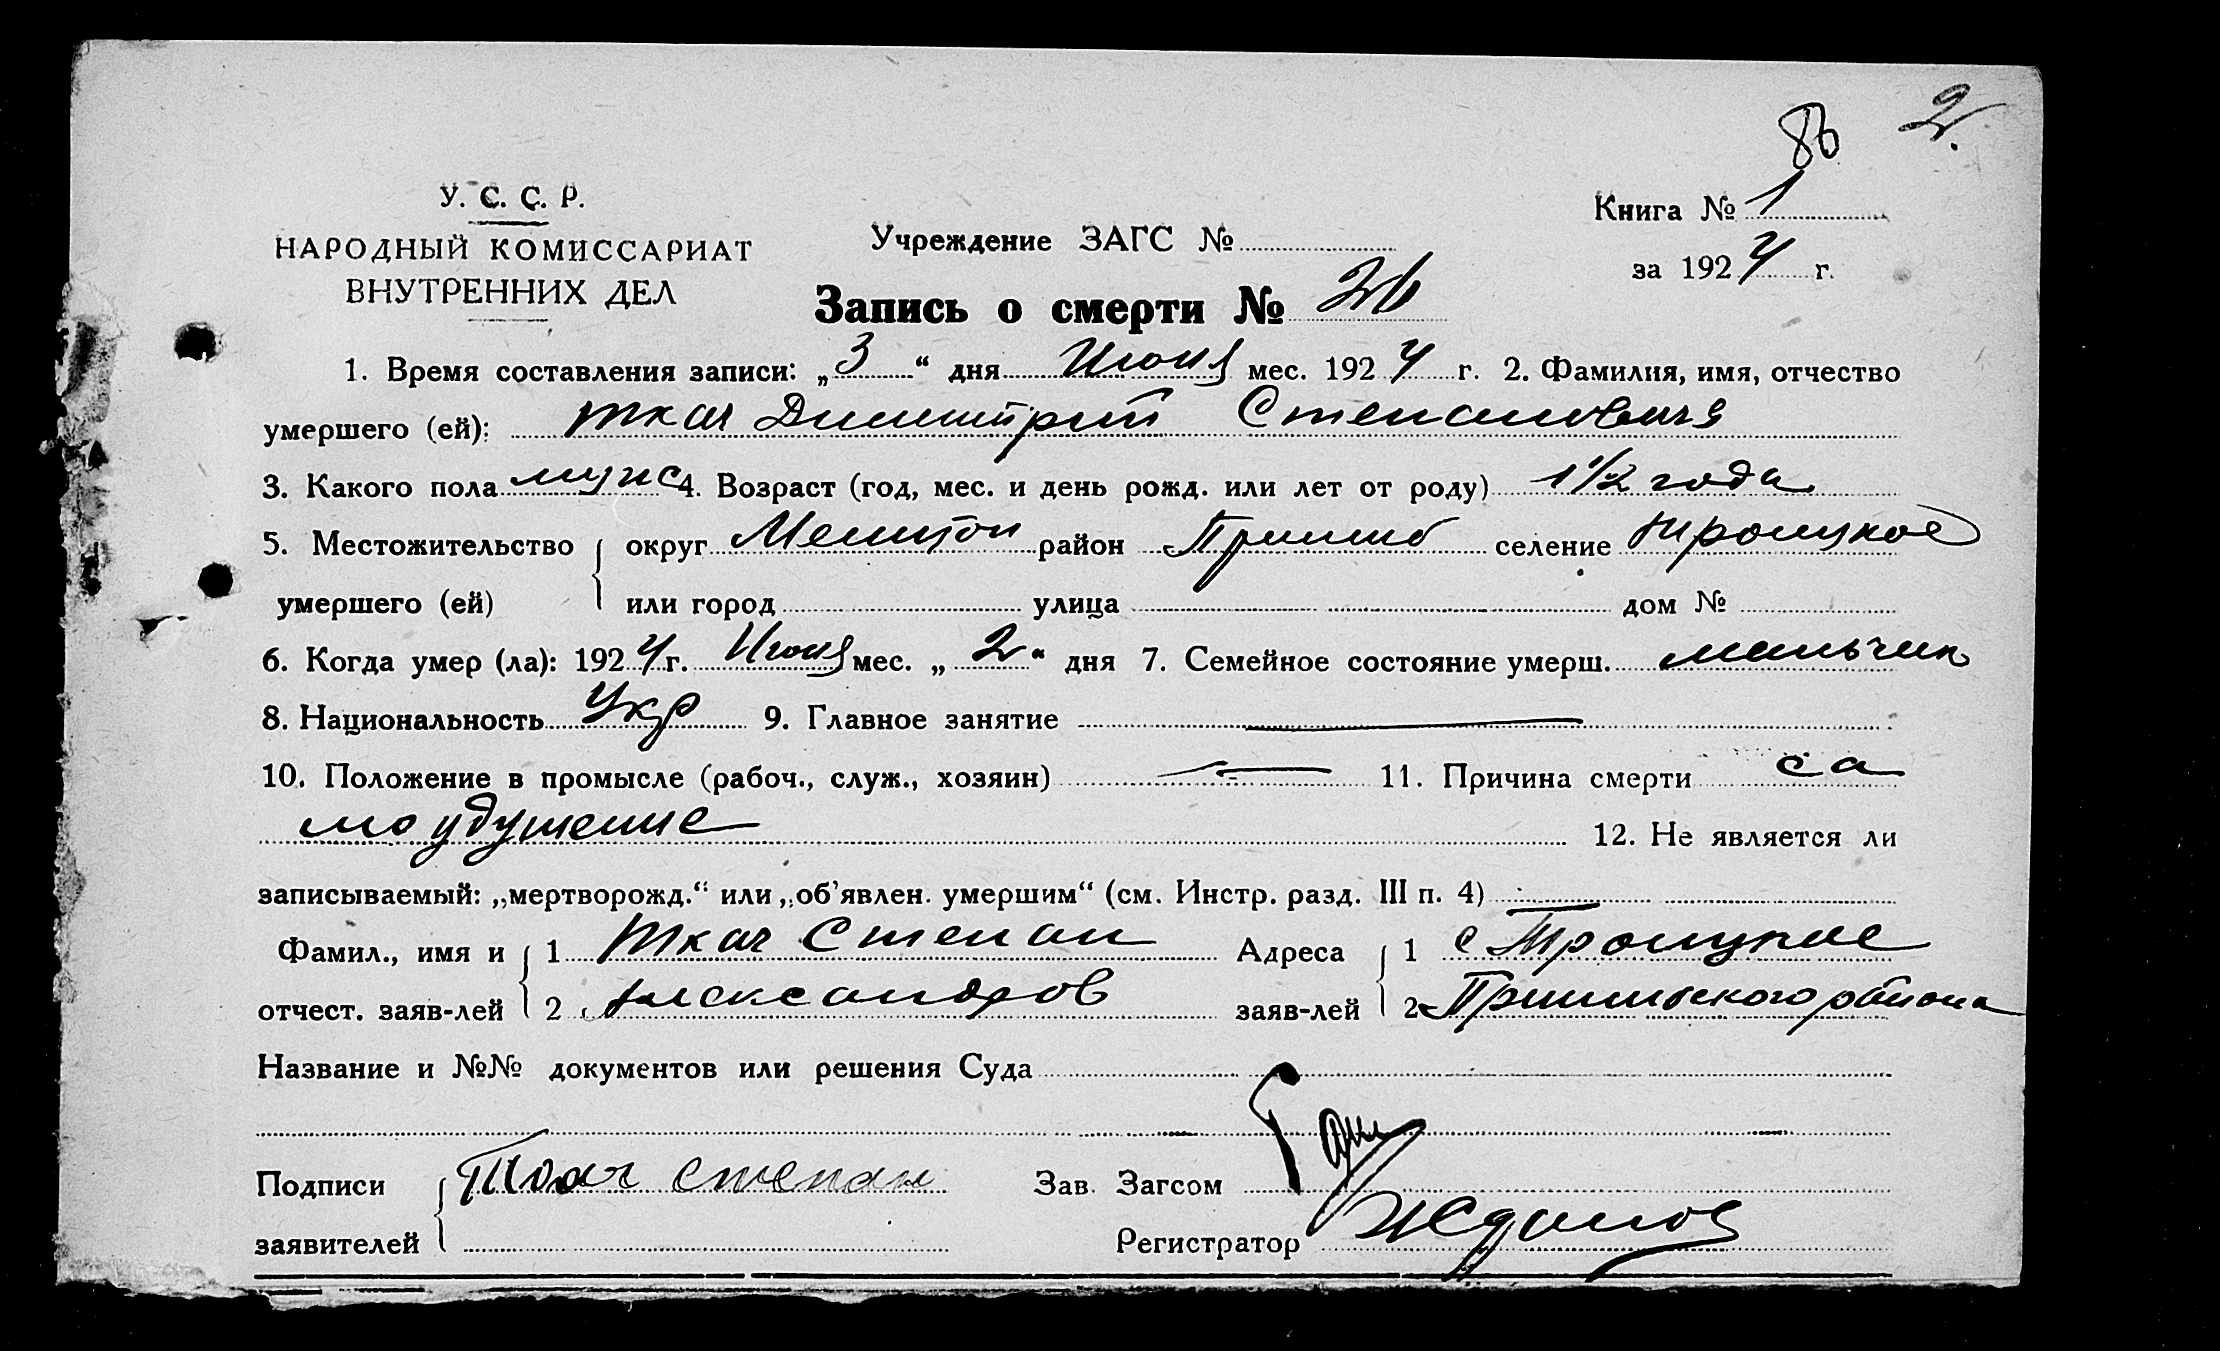 2.
86
У. С. С. Р.
НАРОДНЫЙ КОМИССАРИАТ
ВНУТРЕННИХ ДЕЛ
Учреждение ЗАГС №
Книга № 1
за 1924 г.
Запись о смерти № 26
1. Время составления записи: „3“ дня Июня мес. 1924 г. 2. Фамилия, имя, отчество
умершего (ей): Ткач Димитрий Степановича
3. Какого пола муж 4. Возраст (год, мес. и день рожд. или лет от роду) 1 1/2 года
5. Местожительство округ Мелитоп район Пришиб селение Троицкое
умершего (ей) или город улица дом №
6. Когда умер (ла): 1924 г. Июня мес. „2“ дня 7. Семейное состояние умерш. мальчик
8. Национальность Укр 9. Главное занятие
10. Положение в промысле (рабоч., служ., хозяин) 11. Причина смерти са
моудушение 12. Не является ли
записываемый: „мертворожд.“ или „об'явлен. умершим“ (см. Инстр. разд. III п. 4)
Фамил., имя и 1 Ткач Степан Адреса 1 с Троицкое
отчест. заяв-лей 2 Александров заяв-лей 2 Пришибского района
Название и №№ документов или решения Суда
Подписи Ткач степан Зав. Загсом
заявителей Регистратор